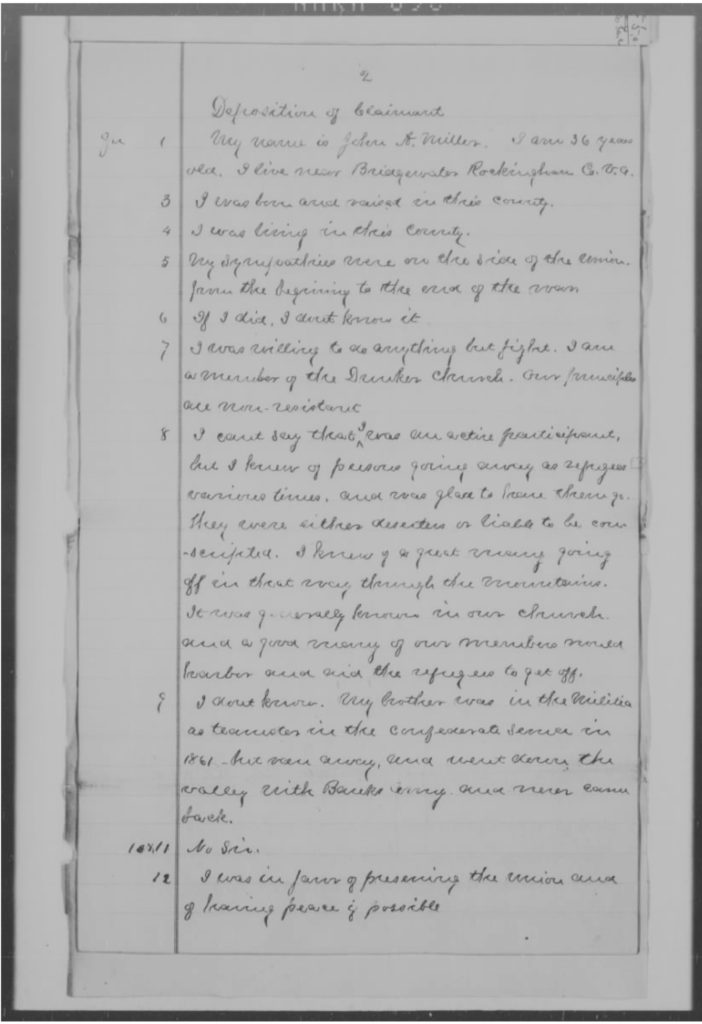 2
Deposition of Claimant
Qu 1 My name is John A. Miller. I am 36 years
old. I live near Bridgewater Rockingham Co. Va.
3 I was born and raised in this county.
4 I was living in this County.
5 My sympathies were on the side of the Union.
from the begining to the end of the war
6 If I did, I dont know it
7 I was willing to do anything but fight. I am
a member of the Dunker Church. Our principles
are non-resistant
8 I cant say that I was an active participant,
but I knew of persons going away as refugees
various times, and was glad to have them go.
They were either deserters or liable to be con
-scripted. I knew of a great many going
off in that way through the mountains.
It was generally known in our church
and a good many of our members would
harbor and aid the refugees to get off.
9 I dont know. My brother was in the Militia
as teamster in the confederate service in
1861 - but ran away, and went down the
valley with Banks army and never came
back.
10&11 No Sir.
12 I was in favor of preserving the union and
of having peace if possible